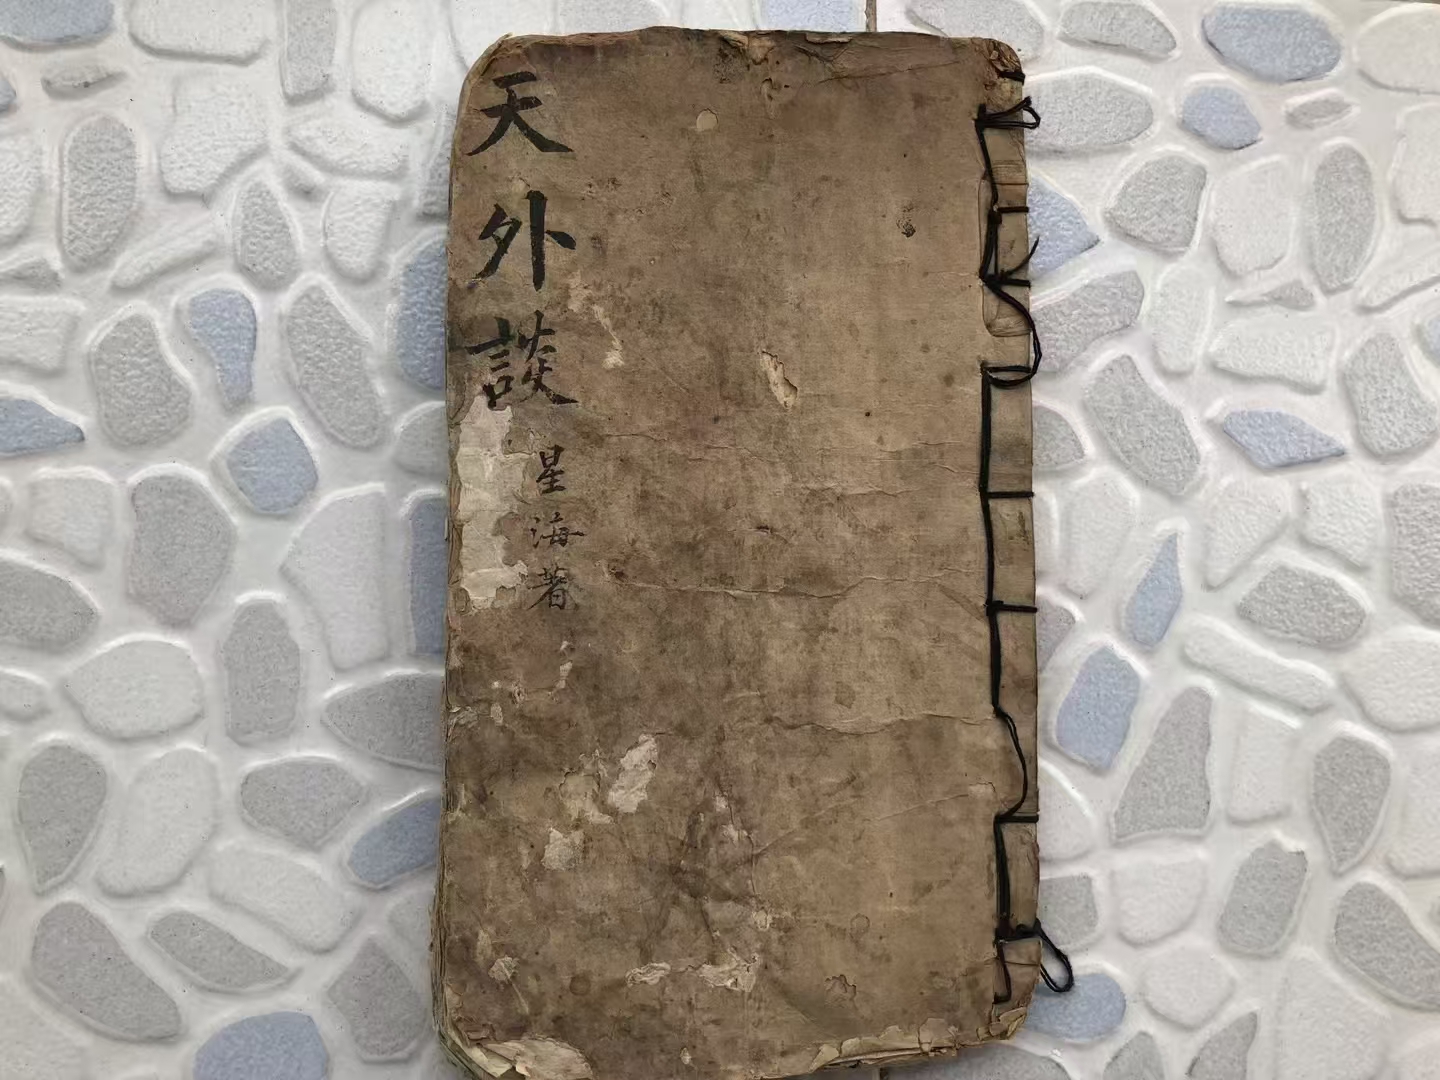 天外談
星海著